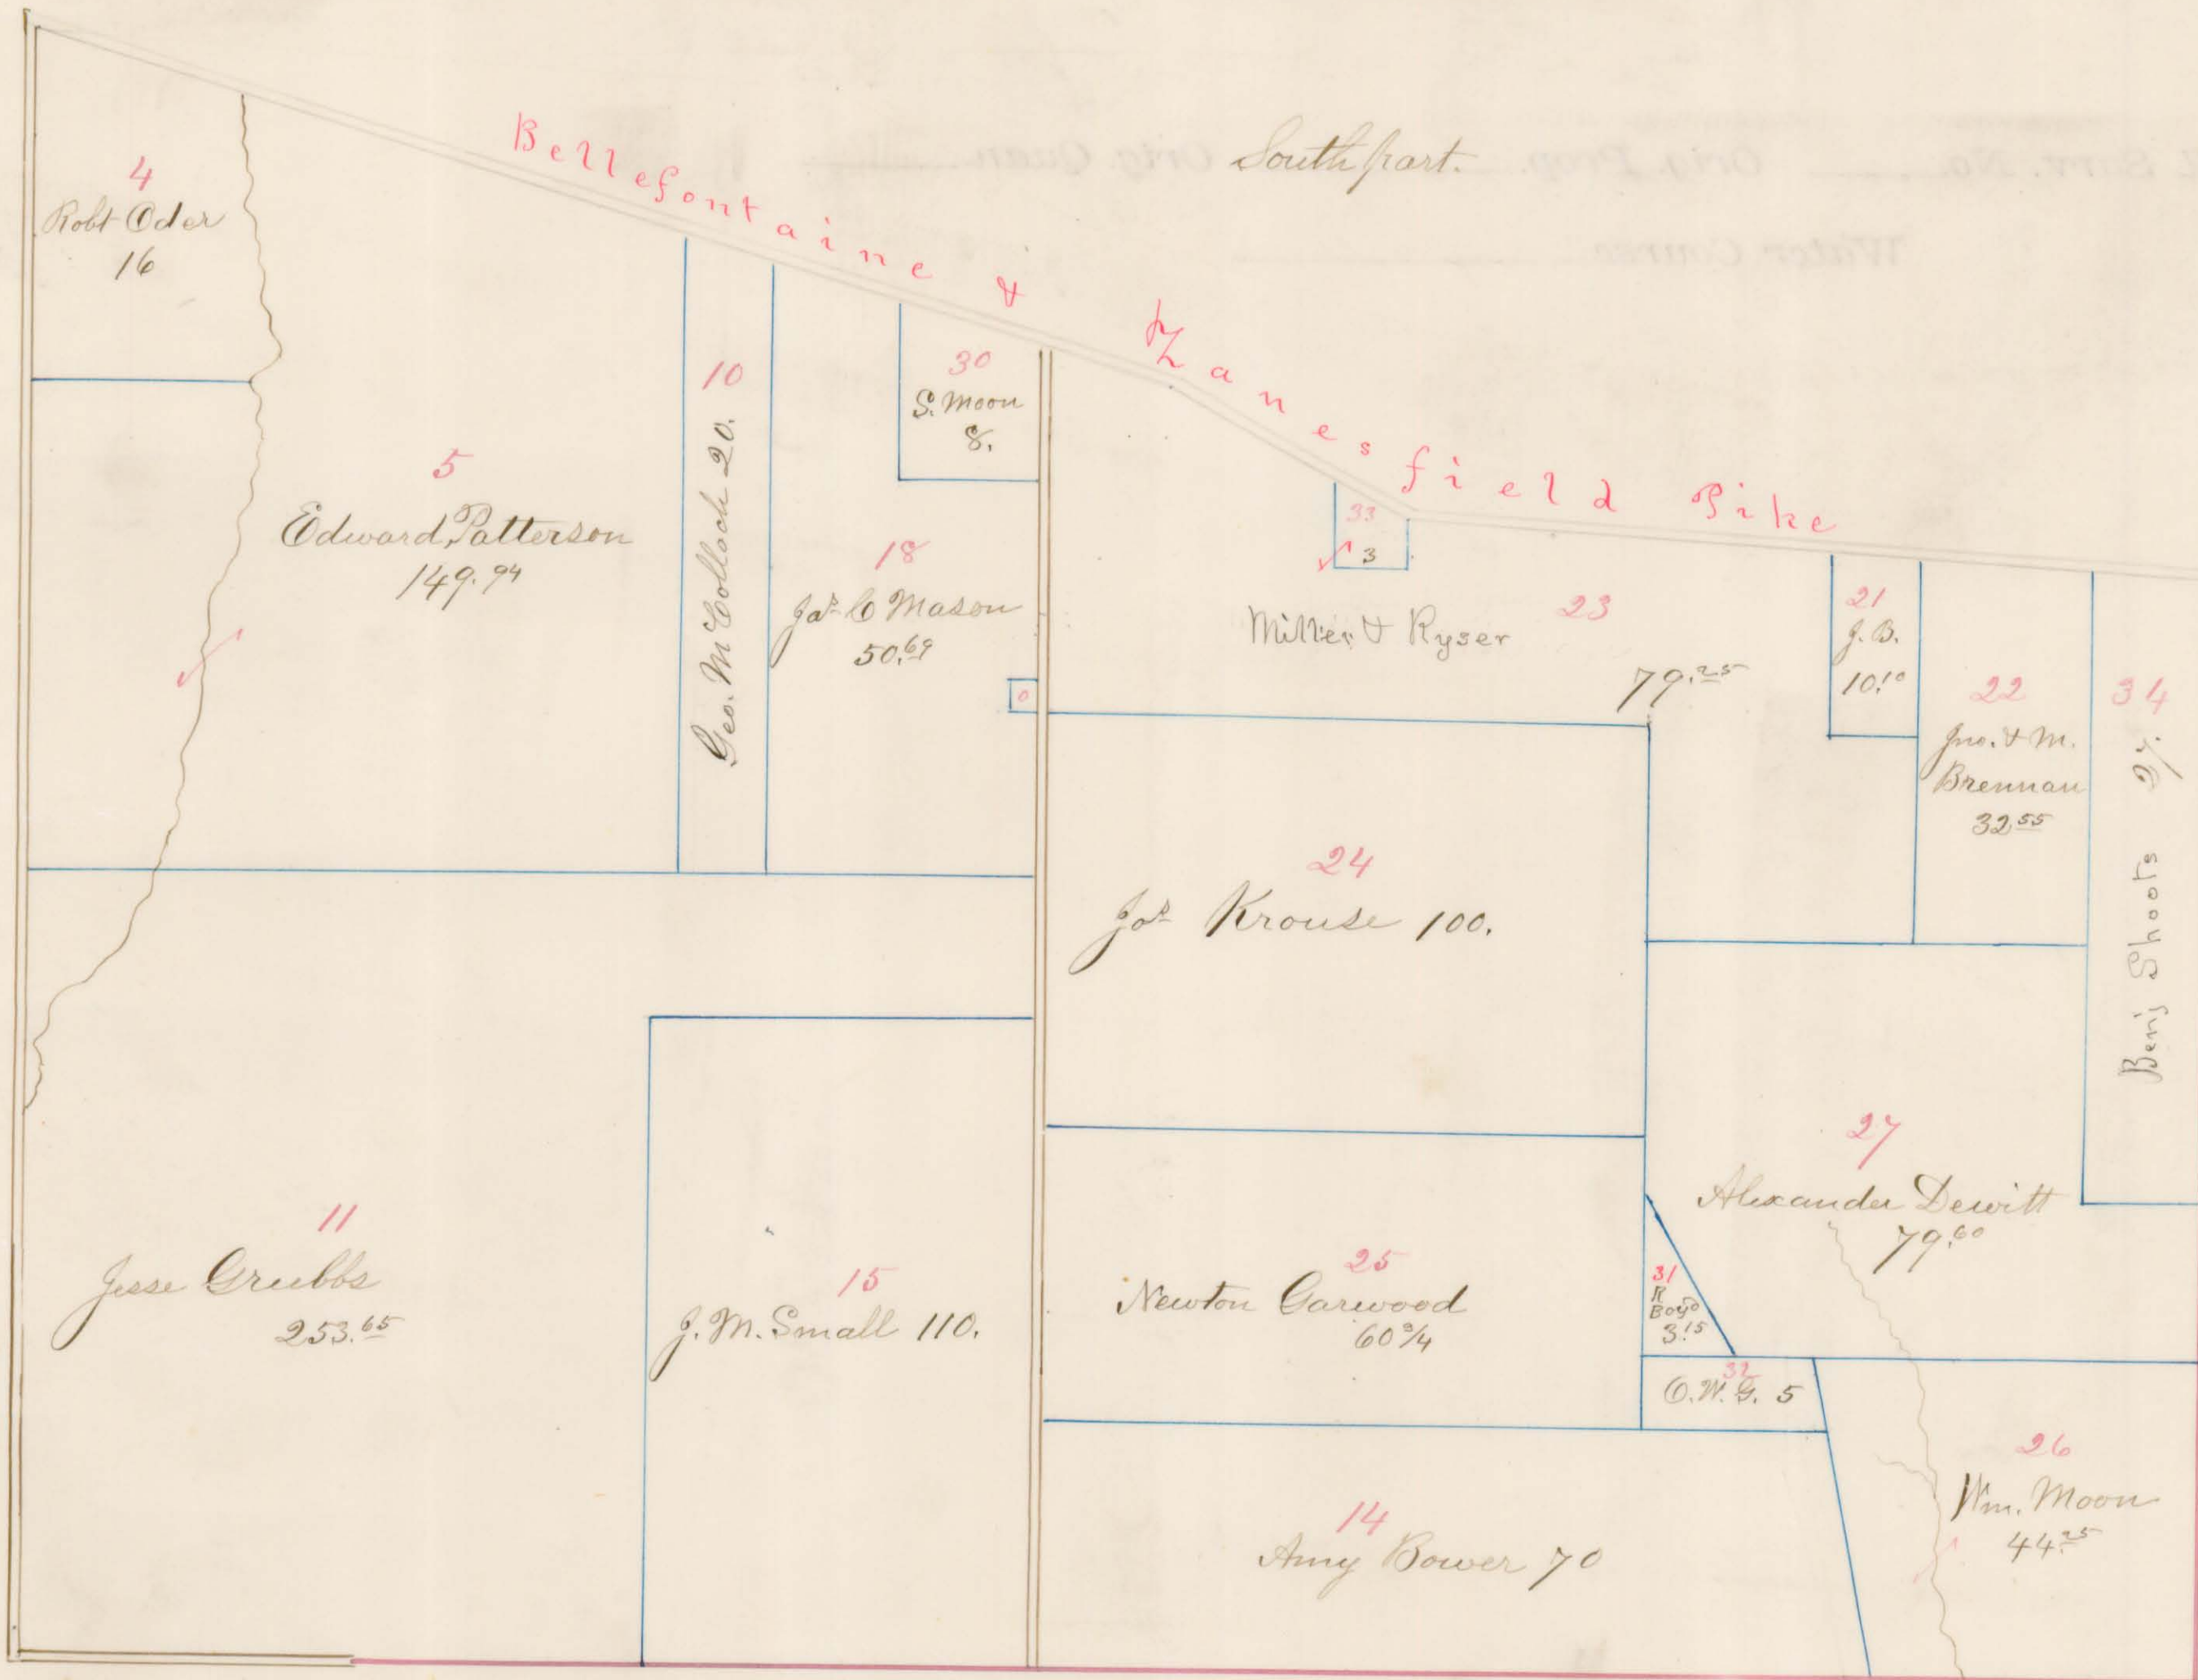 South part.
Bellefontaine & Zanesfield Pike
4
Robt Oder
16
5
Edward Patterson
149.94
10
Geo. McColloch 20.
30
S. Moon
8.
18
Jas C Mason
50.69
0
33
3
23
Miller & Kyser
79.25
21
J.B.
10.10
22
Jno. & M.
Brennan
32 55
34
Benj Shoots
24
Jos Krouse 100.
27
Alexander Dewitt
79.60
11
Jesse Grubbs
253.65
15
J. M. Small 110.
25
Newton Garwood
60 3/4
31
R
Boyd
3.15
32
O.W.G. 5
26
Wm. Moon
44.25
14
Amy Bower 70